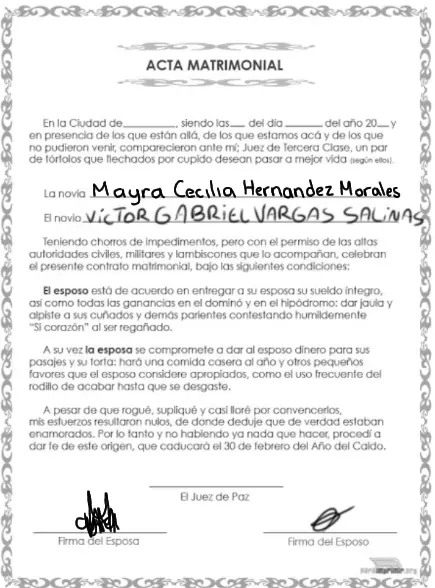 ACTA MATRIMONIAL
En la Ciudad de__________, siendo las___ del día ________ del año 20__ y
en presencia de los que están allá, de los que estamos acá y de los que
no pudieron venir, comparecieron ante mí; Juez de Tercera Clase, un par
de tórtolos que flechados por cupido desean pasar a mejor vida (según ellos).
La novia Mayra Cecilia Hernandez Morales
El novio VíCTOR GABRIEL VARGAS SALINAS
Teniendo chorros de impedimentos, pero con el permiso de las altas
autoridades civiles, militares y lambiscones que lo acompañan, celebran
el presente contrato matrimonial, bajo las siguientes condiciones:
El esposo está de acuerdo en entregar a su esposa su sueldo íntegro,
así como todas las ganancias en el dominó y en el hipódromo: dar jaula y
alpiste a sus cuñados y demás parientes contestando humildemente
"Si corazón" al ser regañado.
A su vez la esposa se compromete a dar al esposo dinero para sus
pasajes y su torta: hará una comida casera al año y otros pequeños
favores que el esposo considere apropiados, como el uso frecuente del
rodillo de acabar hasta que se desgaste.
A pesar de que rogué, supliqué y casi lloré por convencerlos,
mis esfuerzos resultaron nulos, de donde deduje que de verdad estaban
enamorados. Por lo tanto y no habiendo ya nada que hacer, procedí a
dar fe de este origen, que caducará el 30 de febrero del Año del Caldo.
El Juez de Paz
Firma del Esposa
Firma del Esposo